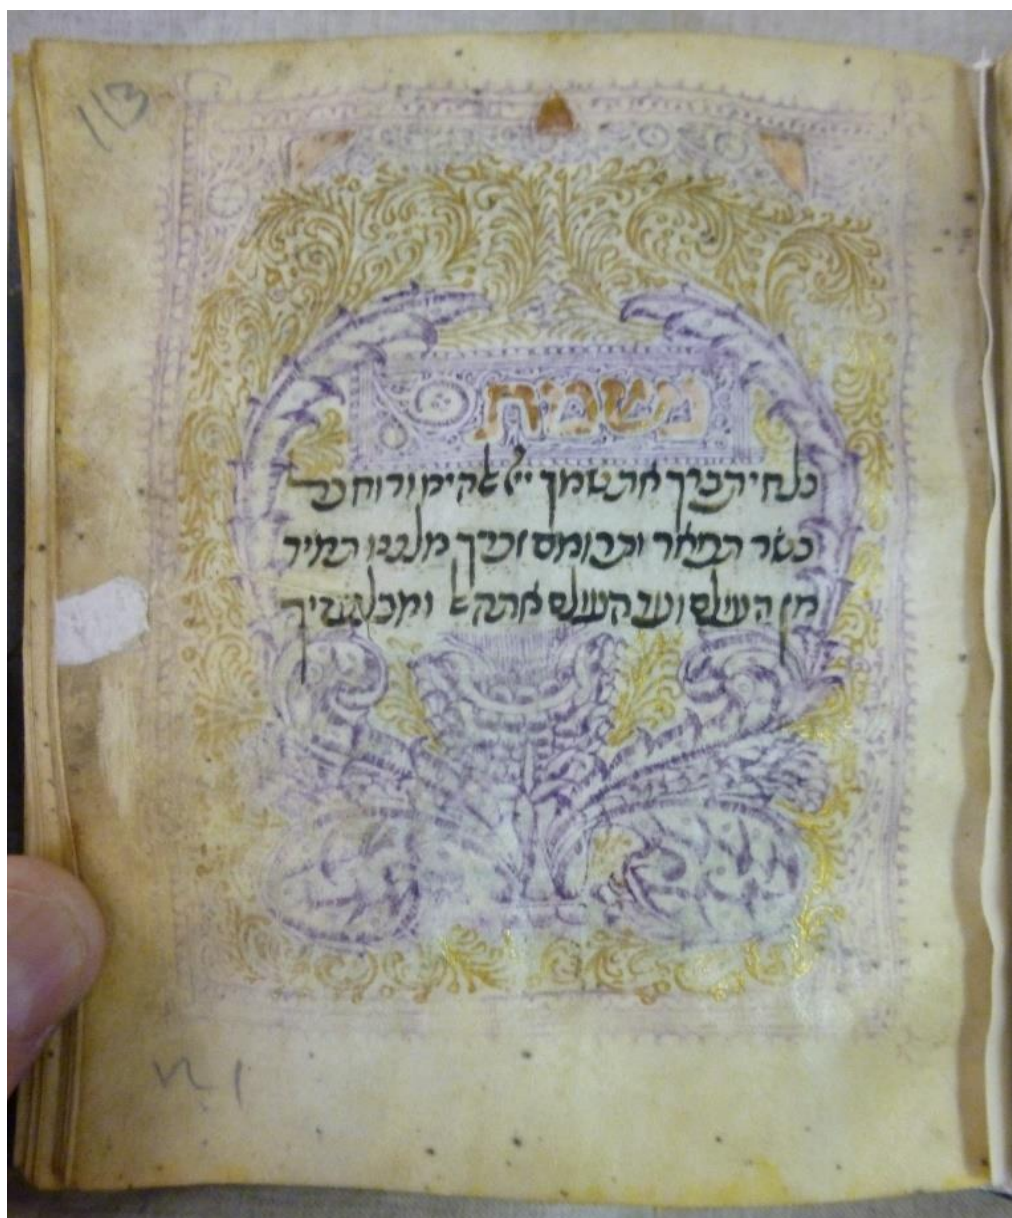 113
נשמת
כל חי תברך את שמך ייי אלהינו ורוח כל
בשר תפאר ותרומם זכרך מלכנו תמיד
מן העולם ועד העולם אתה אל ומבלעדיך